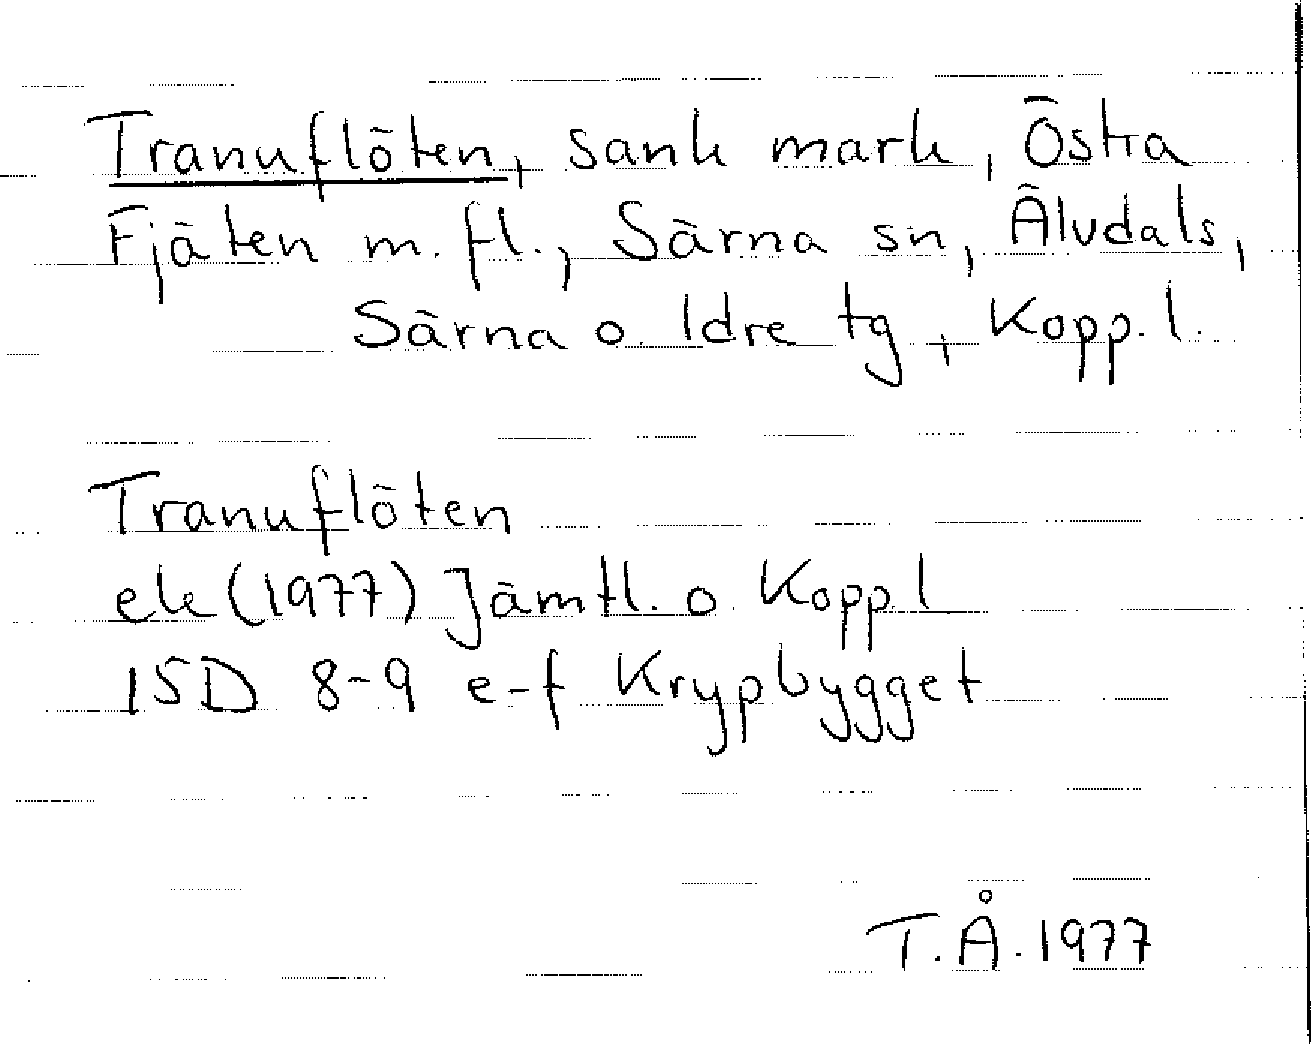 Tranuflöten, sank mark, Östra
Fjäten m. fl., Särna sn, Älvdals,
Särna o. Idre tg, Kopp. l.
Tranuflöten
ek (1977) Jämtl. o Kopp l
15D 8-9 e-f Krypbygget
T.Å. 1977